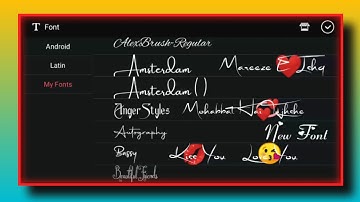 Font
Android
Latin
My Fonts
AlexBrush-Regular
Amsterdam Mareeze E Ishq
Amsterdam ( )
Anger Styles Mohabbat Hai Tujhehe
Autography New Font
Bassy Kiss You Love You
Beautiful Friends